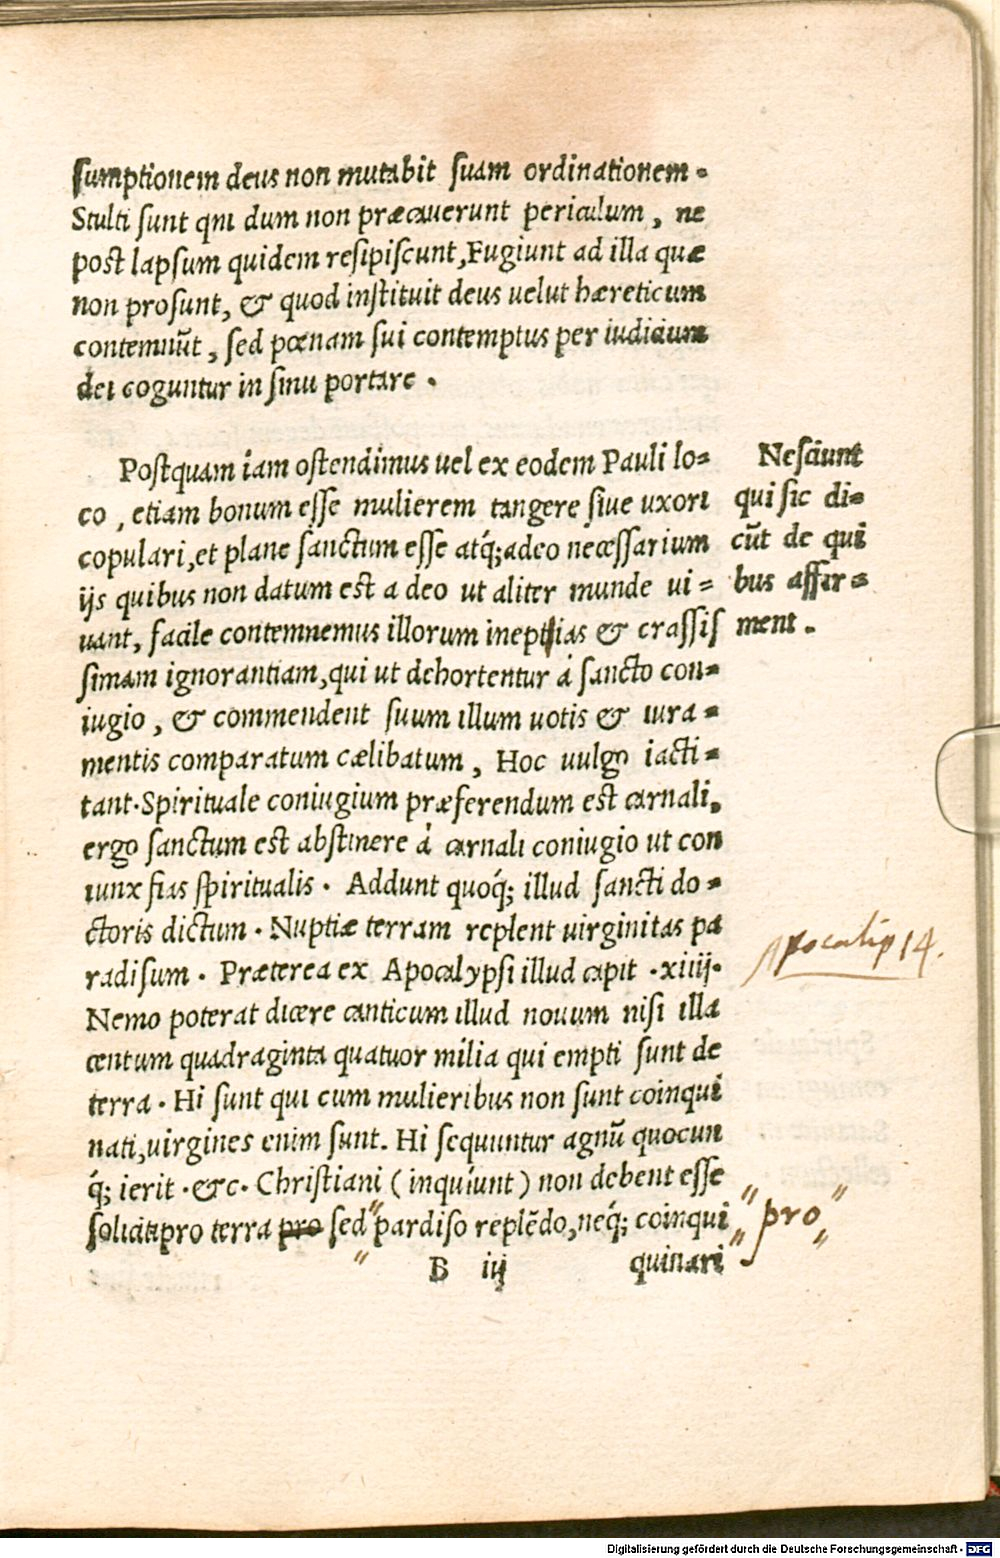 sumptionem deus non mutabit suam ordinationem.
Stulti sunt qui dum non præcauerunt periculum, ne
post lapsum quidem resipiscunt, Fugiunt ad illa quæ
non prosunt, & quod instituit deus uelut hæreticum
contemnūt, sed pœnam sui contemptus per iudicium
dei coguntur in sinu portare.
Postquam iam ostendimus uel ex eodem Pauli lo=
co, etiam bonum esse mulierem tangere siue uxori
copulari, et plane sanctum esse atq́; adeo necessarium
ijs quibus non datum est a deo ut aliter munde ui=
uant, facile contemnemus illorum ineptias & crassis
simam ignorantiam, qui ut dehortentur á sancto con=
iugio, & commendent suum illum uotis & iura=
mentis comparatum cælibatum, Hoc uulgo iacti=
tant. Spirituale coniugium præferendum est carnali,
ergo sanctum est abstinere á carnali coniugio ut con
iunx fias spiritualis. Addunt quoq́; illud sancti do=
ctoris dictum. Nuptiæ terram replent uirginitas pa
radisum. Præterea ex Apocalypsi illud capit .xiiij.
Nemo poterat dicere canticum illud nouum nisi illa
centum quadraginta quatuor milia qui empti sunt de
terra. Hi sunt qui cum mulieribus non sunt coinqui
nati, uirgines enim sunt. Hi sequuntur agnū quocun
q́; ierit .&c. Christiani (inquíunt) non debent esse
soliciti pro terra pro sed " pardiso replēdo, neq́; coinqui
B iij quinari
Nesciunt
qui sic di=
cūt de qui
bus affir=
ment.
Apocalip 14.
" pro "